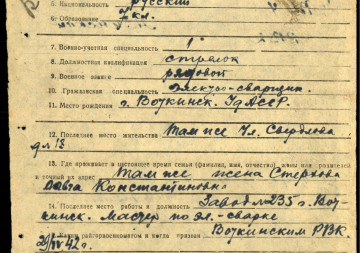 5. Национальность русский
6. Образование 7 кл.
7. Военно-учетная специальность 1
8. Должностная квалификация стрелок
9. Военное звание рядовой
10. Гражданская специальность электро-сварщик
11. Место рождения г. Воткинск. УдАССР.
12. Последнее место жительства Там же Ул. Свердлова
д. 13
13. Где проживает в настоящее время семья (фамилия, имя, отчество) жены или родителей
и точный их адрес Там же жена Стерхова
Константиновна
14. Последнее место работы и должность Завод №235 г. Вот-
кинск. Мастер по эл.-сварке
15. Каким райгорвоенкоматом и когда призван Воткинским РВК.
42 г.